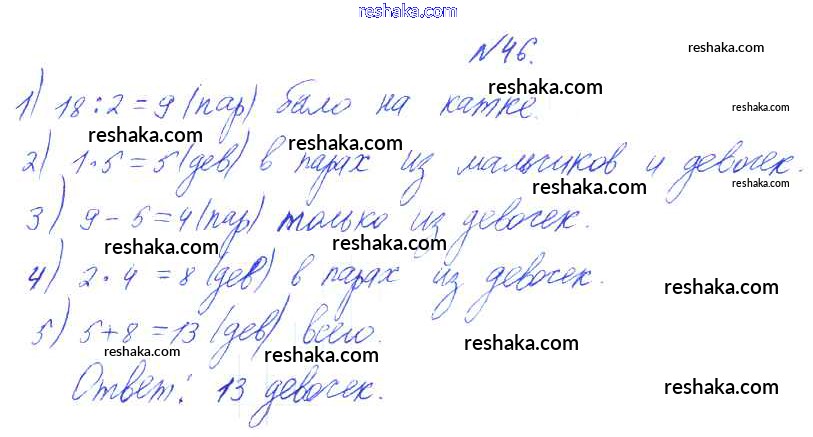 reshaka.com
№46.
reshaka.com
1) 18:2=9 (пар) было на катке.
reshaka.com
reshaka.com
reshaka.com
reshaka.com
2) 1·5=5 (дев) в парах из мальчиков и девочек.
reshaka.com
reshaka.com
3) 9-5=4 (пар) только из девочек.
reshaka.com
reshaka.com
4) 2·4=8 (дев) в парах из девочек.
reshaka.com
5) 5+8=13 (дев) всего.
reshaka.com
reshaka.com
reshaka.com
Ответ: 13 девочек.
reshaka.com